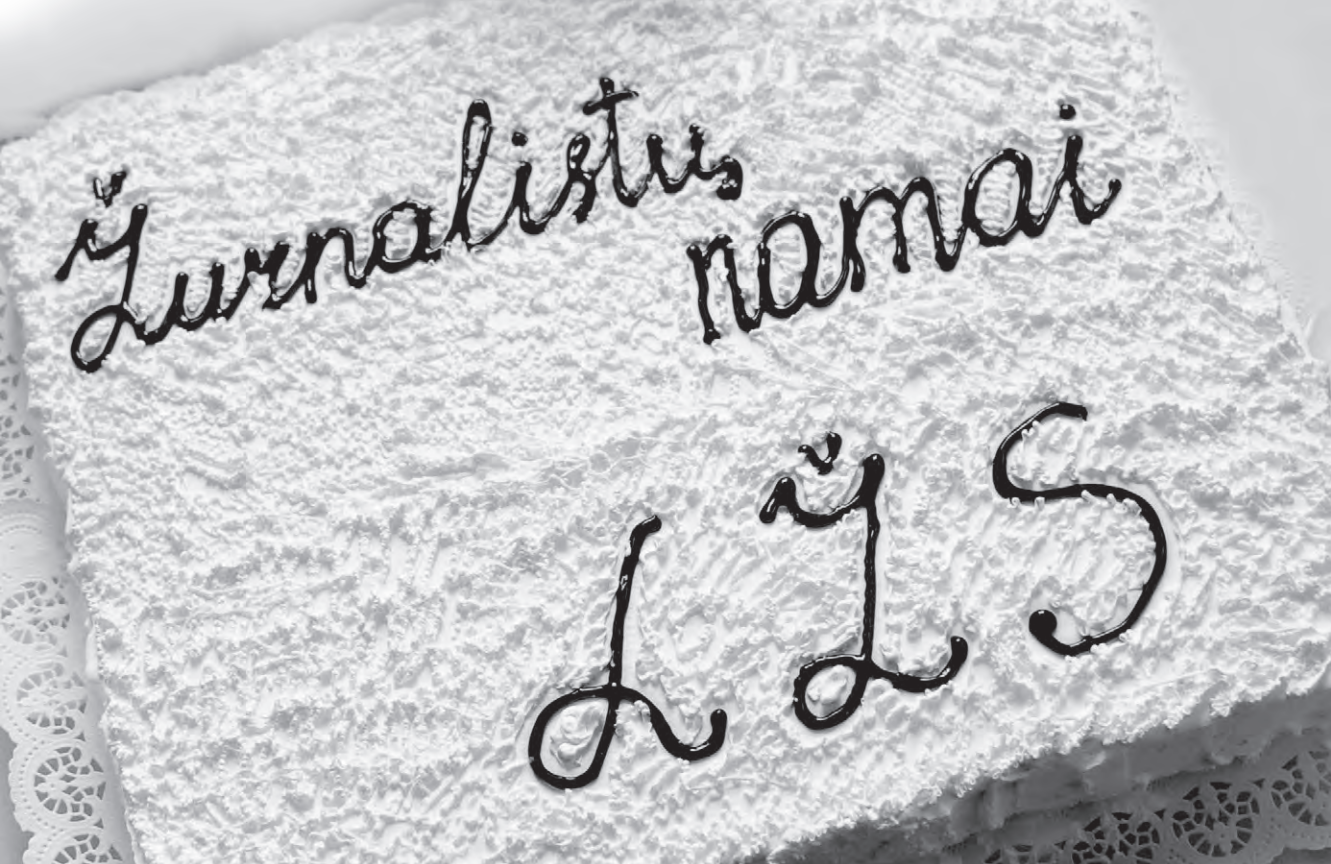 Žurnalistų
namai
LŽS